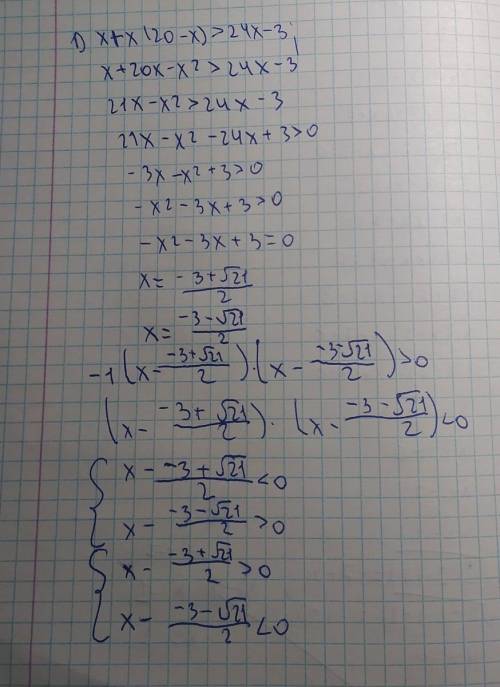 1) x+x(20-x)>24x-3
x+20x-x²>24x-3
21x-x²>24x-3
21x-x²-24x+3>0
-3x-x²+3>0
-x²-3x+3>0
-x²-3x+3=0
x=(-3+√21)/2
x=(-3-√21)/2
-1(x-(-3+√21)/2)·(x-(-3-√21)/2)>0
(x-(-3+√21)/2)·(x-(-3-√21)/2)<0
{x-(-3+√21)/2<0
x-(-3-√21)/2>0
{x-(-3+√21)/2>0
x-(-3-√21)/2<0